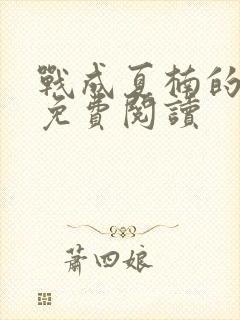 戰成夏楠的
免費閱讀
蕭四娘